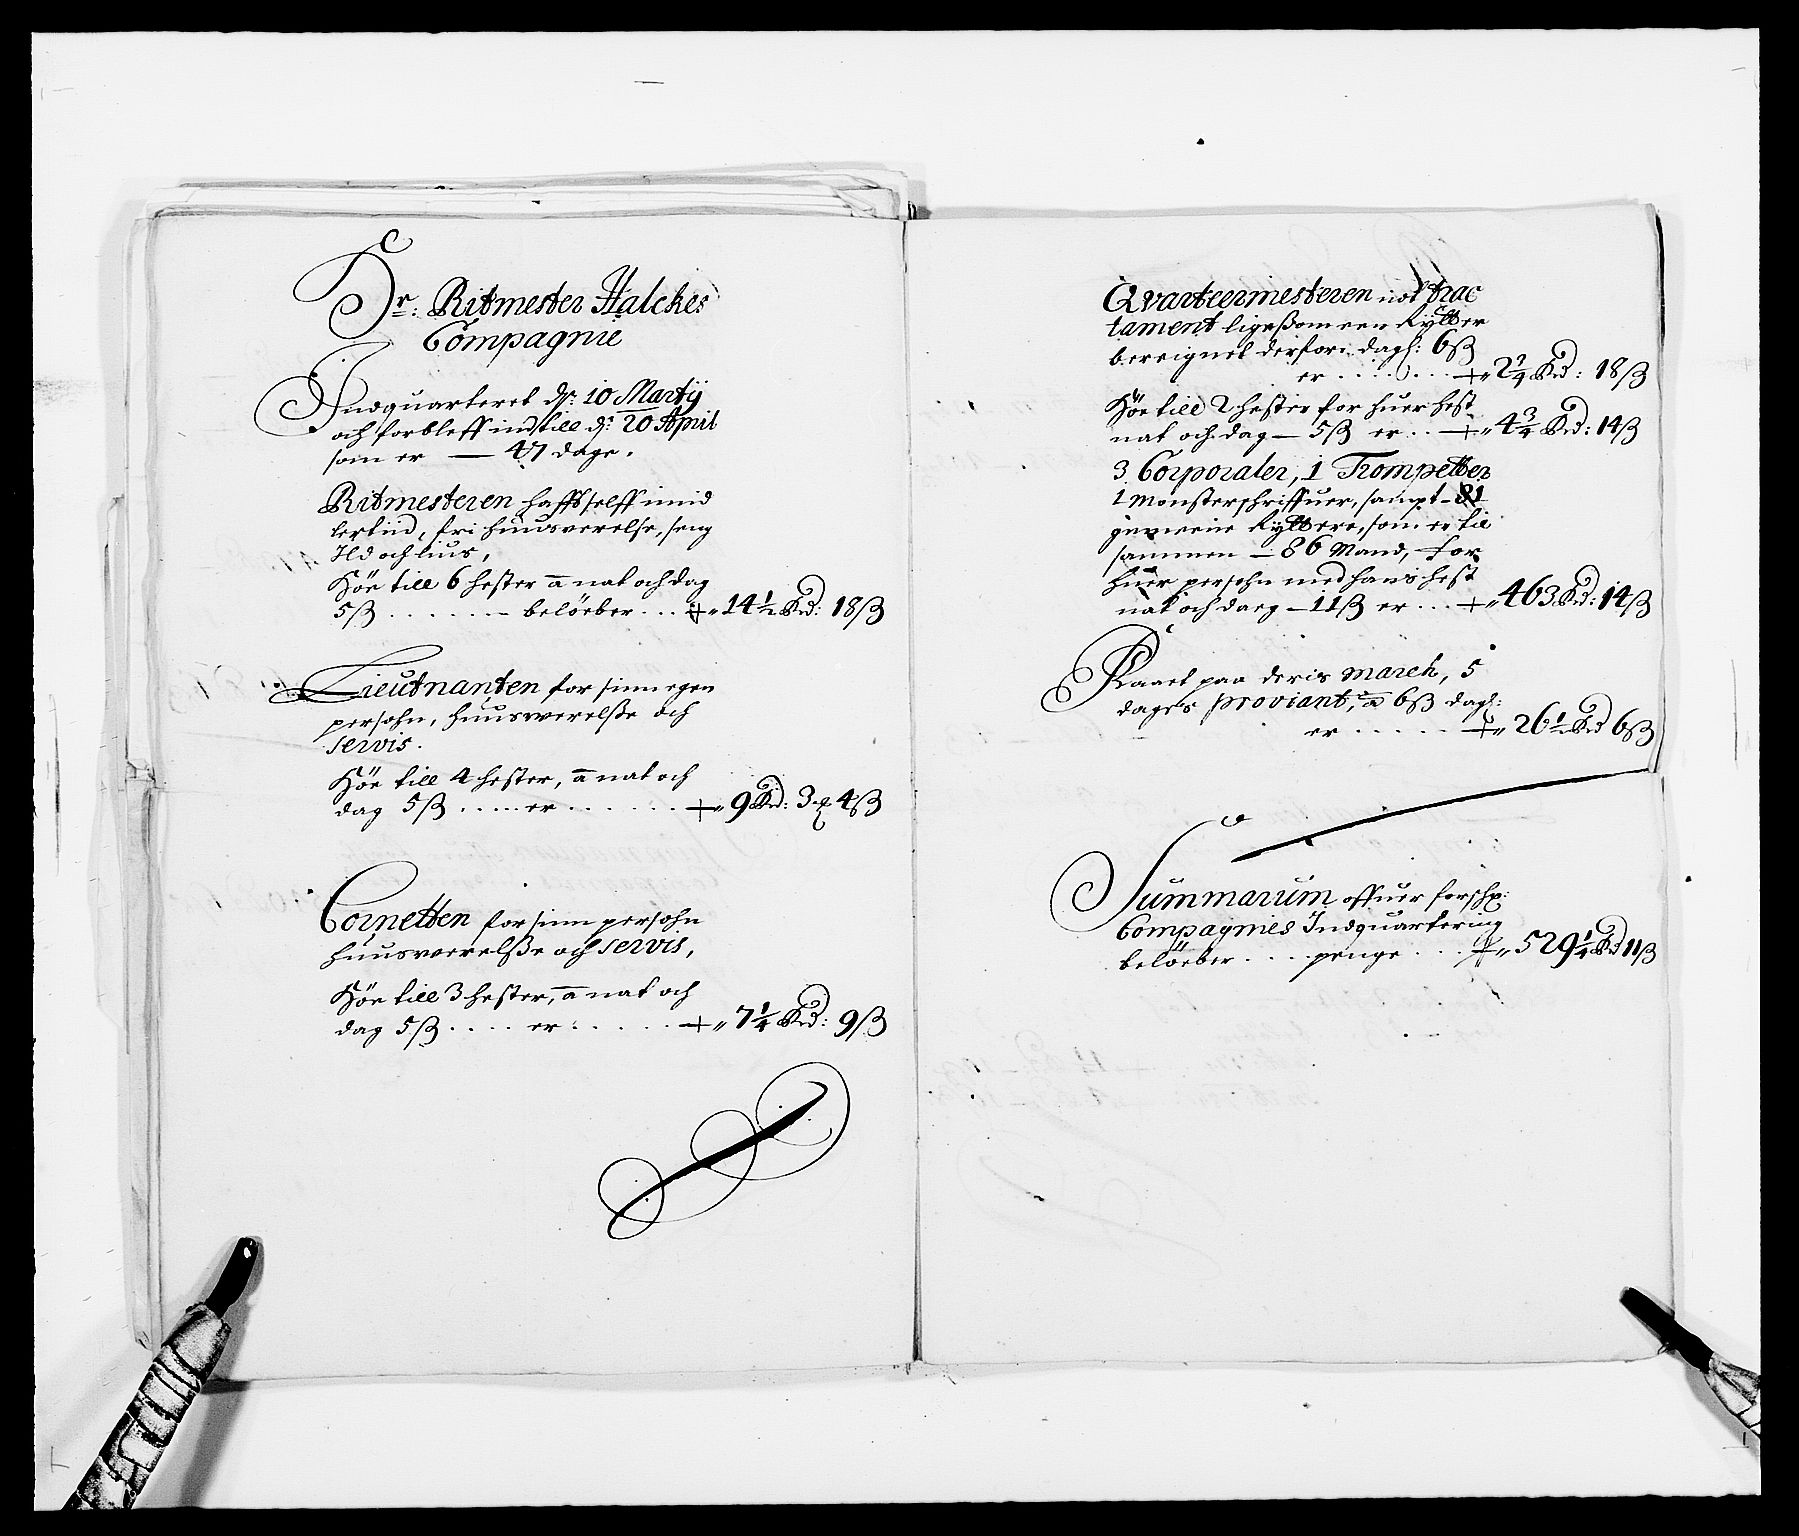 Hr: Ritmester Halckes
Compagnie
Indquarteret dn: 10 Martij
och forbleff ind till dn: 20 April
som er — 47 dage.
Ritmesteren hafft self imid
lertid, fri huusverelse, seng
Ild och lius,
Höe till 6 hester a nat och dag
5ß ...... beløeber ... 14½ Rd: 18ß
Lieutnanten for sinn egen
persohn, huusverelße och
servis.
Höe till 4 hester, a nat och
dag 5ß ..... er ...... 9 Rd: 3 4ß
Cornetten for sinn persohn
huusverelße och servis,
Höe till 3 hester, a nat och
dag 5ß .... er ..... 7¼ Rd: 9ß
Qvarteermesteren trac
tament ligeßom een Rytter
bereignet derfore dagl: 6ß
er ..... 2¾ Rd: 18ß
Höe till 2 hester for huer hest
nat och dag — 5ß er .. 4¾ Rd: 14ß
3 Corporaler, 1 Trompetter
1 Mönsterschriffuer, sampt 81
gemeene Ryttere, som er til
sammen — 86 Mand, for
huer persohn med hans hest
nat och dag — 11ß er ... 463 Rd: 14ß
paa deris march, 5
dages proviant, a 6ß dagl:
er ..... 26½ Rd 6ß
Summarum offuer forschr:
Compagnies Indquartering
beløeber .... penge ... 529¼ Rd 11ß